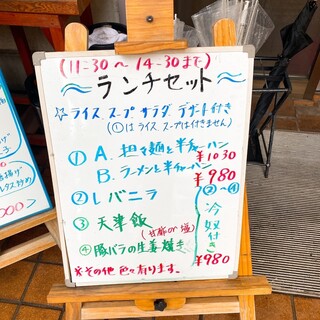 (11-30〜14-30まで)
〜ランチセット〜
☆ライス、スープ、サラダ、デザート付き
(①はライス、スープは付きません)
① A. 担々麺と半チャーハン
¥1030
B. ラーメンと半チャーハン
¥980
② レバニラ
③ 天津飯
(甘酢or塩)
④ 豚バラの生姜焼き
②〜④
冷奴付き
¥980
※その他色々有ります。